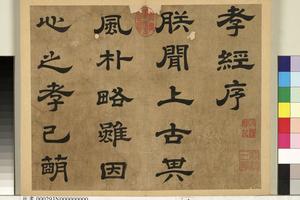 孝經序
朕聞上古其
風朴略雖因
心之孝已萌